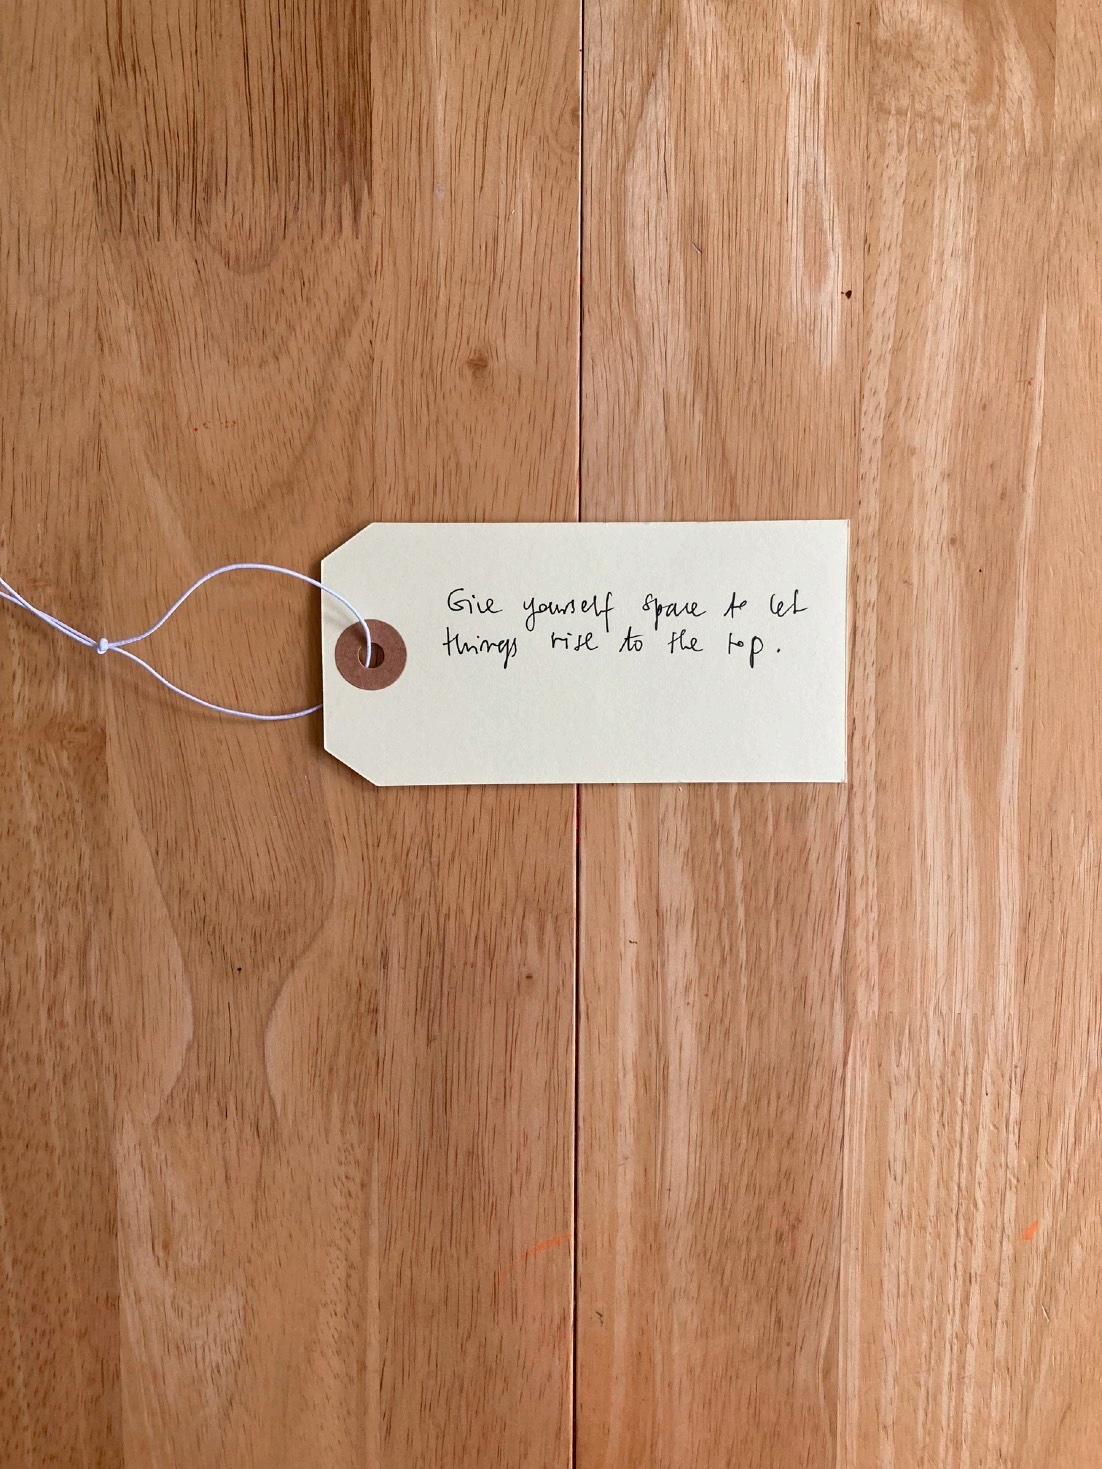 Give yourself space to let
things rise to the top.